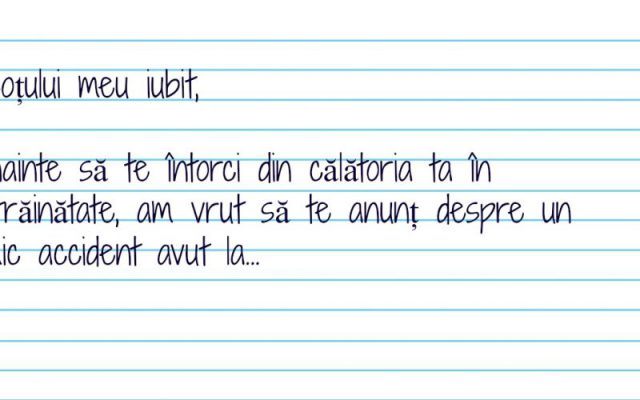 oțului meu iubit,
ainte să te întorci din călătoria ta în
răinătate, am vrut să te anunț despre un
ic accident avut la...